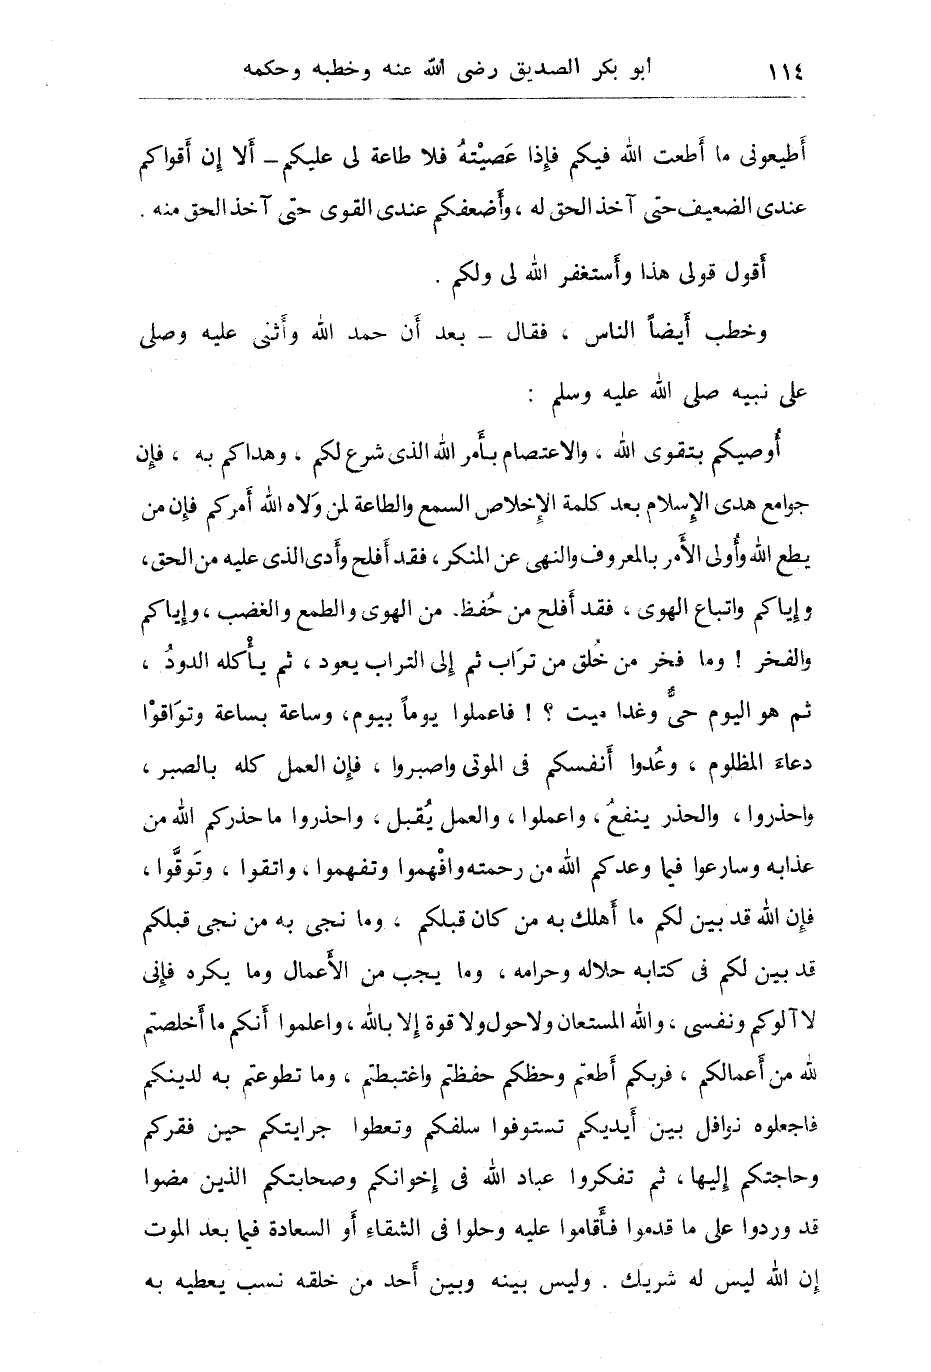 ١١٤ أبو بكر الصديق رضى الله عنه وخطبه وحكمه
أطيعونى ما أطعت الله فيكم فإذا عَصيْتهُ فلا طاعة لى عليكم – ألا إن أقواكم
عندى الضعيف حتى آخذ الحق له ، وأضعفكم عندى القوى حتى آخذ الحق منه .
أقول قولى هذا وأستغفر الله لى ولكم .
وخطب أيضاً الناس ، فقال – بعد أن حمد الله وأثنى عليه وصلى
على نبيه صلى الله عليه وسلم :
أُوصيكم بتقوى الله ، والاعتصام بأمر الله الذى شرع لكم ، وهداكم به ، فإن
جوامع هدى الإسلام بعد كلمة الإخلاص السمع والطاعة لمن وَلاه الله أمركم فإن من
يطع الله وأُولى الأمر بالمعروف والنهى عن المنكر ، فقد أفلح وأدى الذى عليه من الحق ،
وإياكم واتباع الهوى ، فقد أفلح من حُفظ. من الهوى والطمع والغضب ، وإياكم
والفخر ! وما فخر من خُلق من ترَاب ثم إلى التراب يعود ، ثم يأْكله الدودُ ،
ثم هو اليوم حىٌّ وغدا ميت ؟ ! فاعملوا يوماً بيوم ، وساعة بساعة وتوَاقوْا
دعاءَ المظلوم ، وعُدوا أنفسكم فى الموتى واصبروا ، فإن العمل كله بالصبر ،
واحذروا ، والحذر ينفعُ ، واعملوا ، والعمل يُقبل ، واحذروا ما حذركم الله من
عذابه وسارعوا فيما وعدكم الله من رحمته وافْهموا وتفهموا ، واتقوا ، وتَوقَّوا ،
فإن الله قد بين لكم ما أهلك به من كان قبلكم ، وما نجى به من نجى قبلكم
قد بين لكم فى كتابه حلاله وحرامه ، وما يجب من الأعمال وما يكره فإنى
لا آلوكم ونفسى ، والله المستعان ولا حول ولا قوة إلا بالله ، واعلموا أنكم ما أخلصتم
لله من أعمالكم ، فربكم أطعتم وحظكم حفظتم واغتبطتم ، وما تطوعتم به لدينكم
فاجعلوه نوافل بين أيديكم تستوفوا سلفكم وتعطوا جرايتكم حين فقركم
وحاجتكم إليها ، ثم تفكروا عباد الله فى إخوانكم وصحابتكم الذين مضوا
قد وردوا على ما قدموا فأقاموا عليه وحلوا فى الشقاء أو السعادة فيما بعد الموت
إن الله ليس له شريك . وليس بينه وبين أحد من خلقه نسب يعطيه به